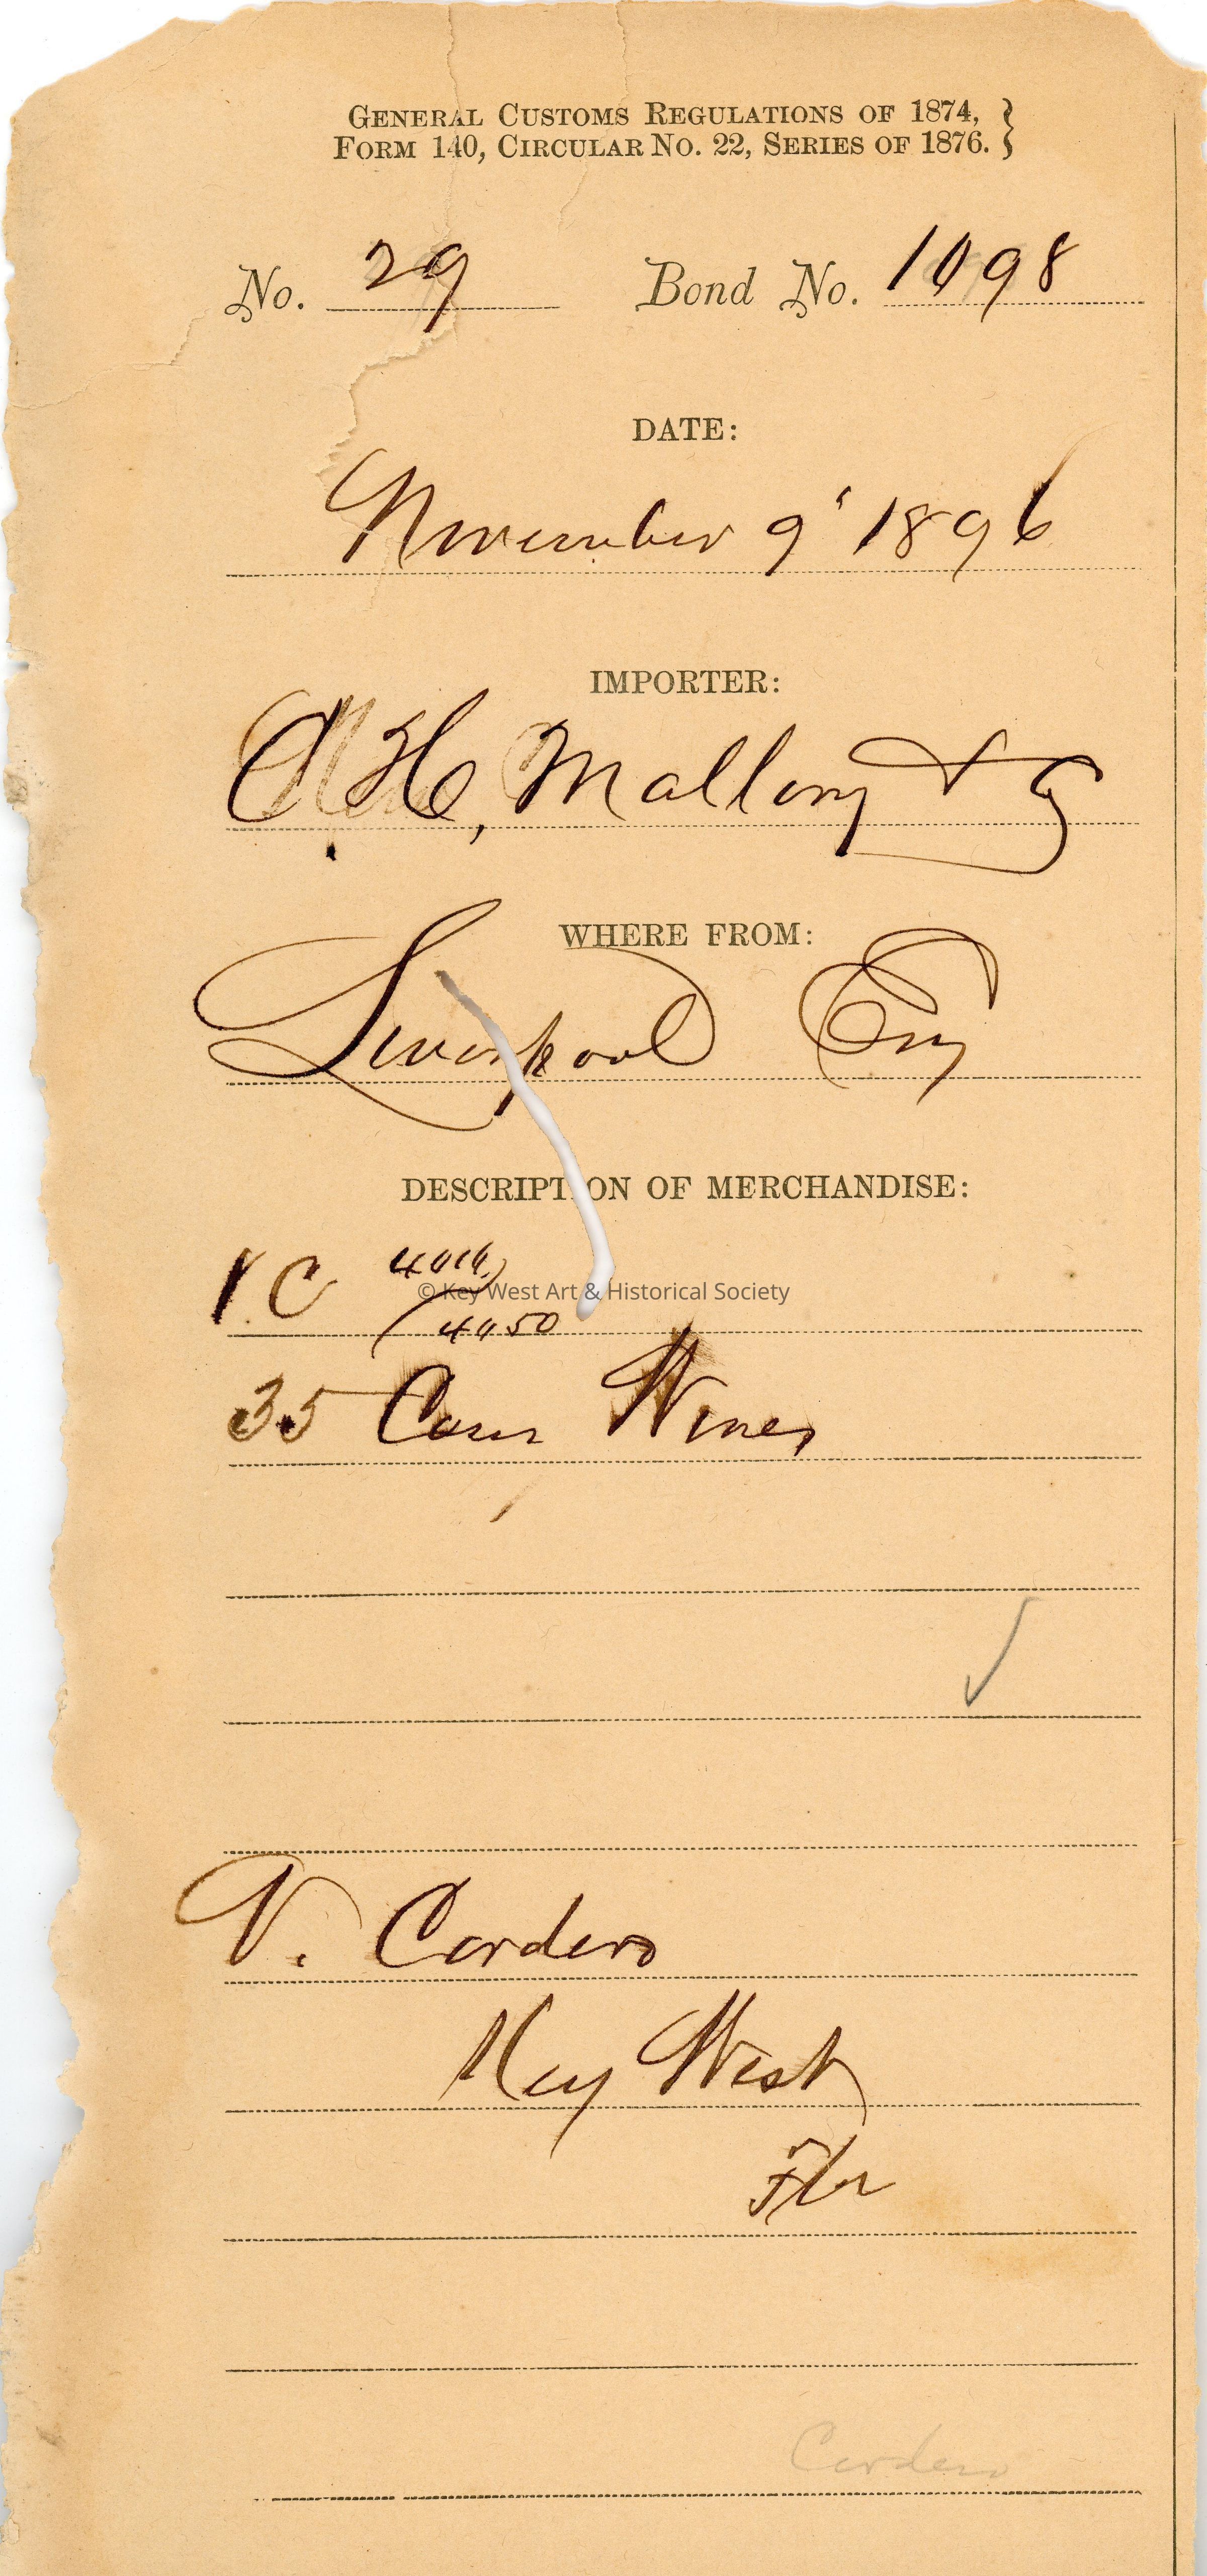 GENERAL CUSTOMS REGULATIONS OF 1874, }
FORM 140, CIRCULAR NO. 22, SERIES OF 1876. }
No. 29 Bond No. 1098
DATE:
November 9' 1896
IMPORTER:
C H, Mallory & Co
WHERE FROM:
Liverpool Eng
DESCRIPTION OF MERCHANDISE:
V. C 4016/
© Key West Art & Historical Society
4050
35 Cases Wines
V. Cordero
Key West
Fla
Cordero